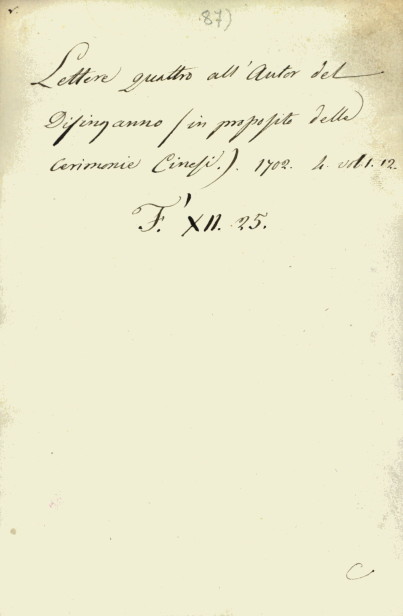 87)
Lettere quattro all'Autor del
Disinganno (in proposito delle
Cerimonie Cinesi.). 1702. 4. vol. 12.
F.' XII. 25.
C